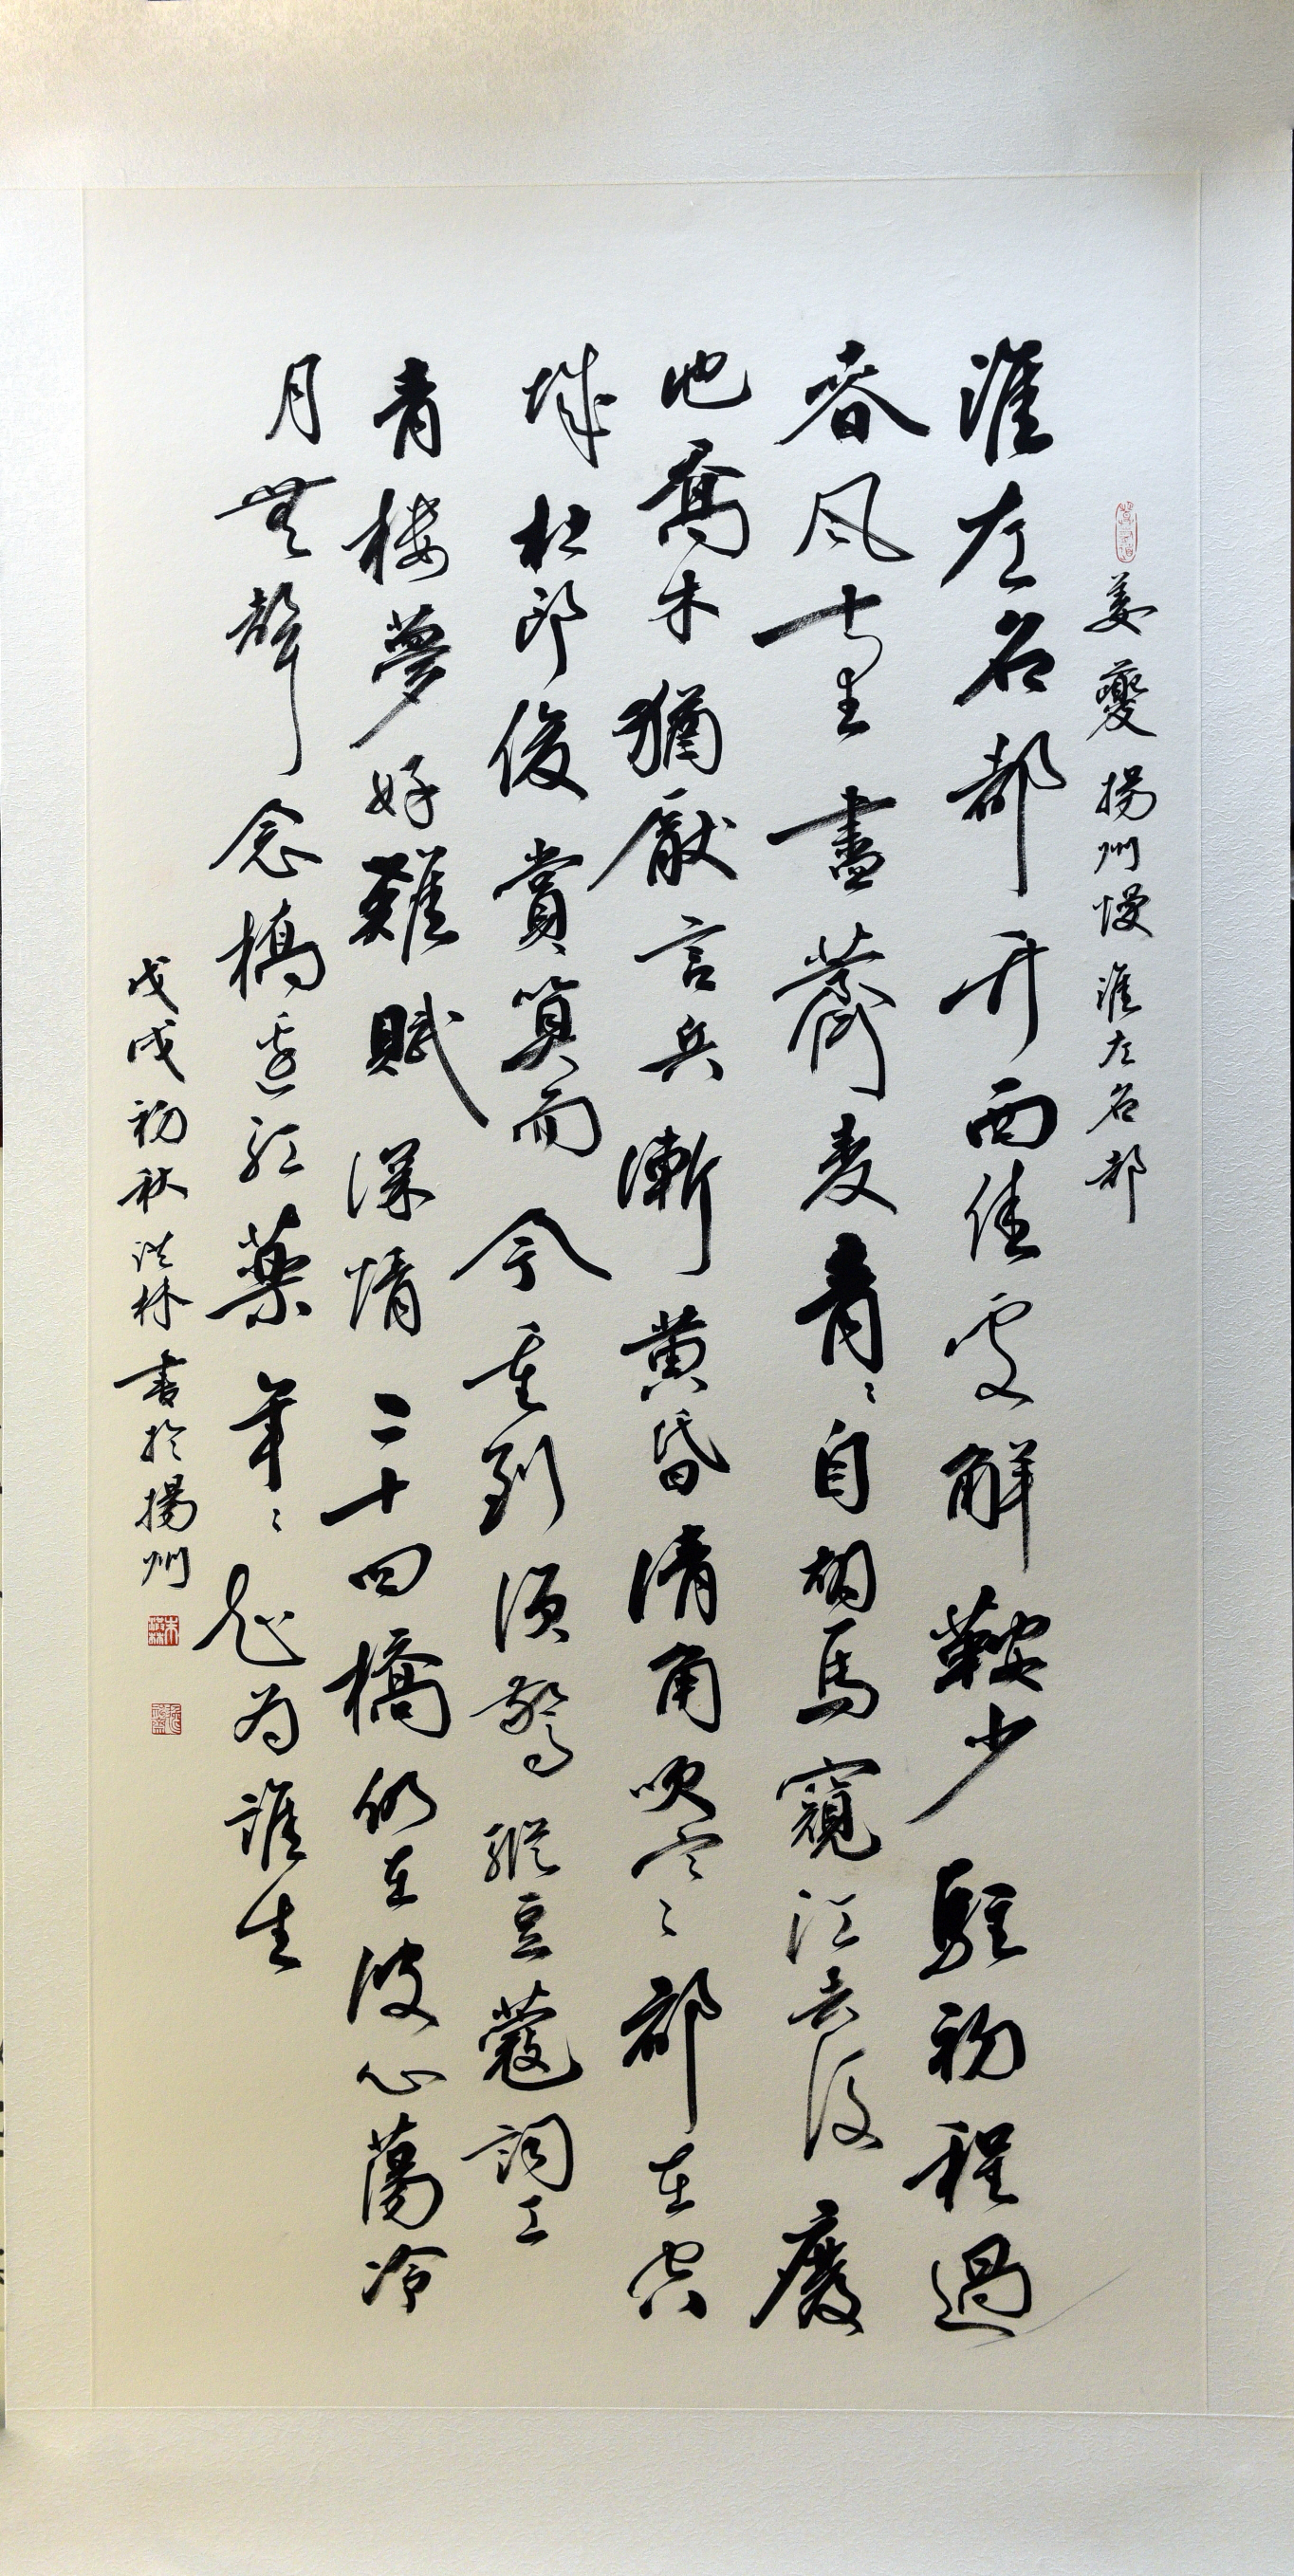 姜夔 揚州慢 淮左名都
淮左名都竹西佳處解鞍少駐初程過
春風十里盡薺麥青〻自胡馬窺江去後廢
池喬木猶厭言兵漸黃昏清角吹寒〻都在空
城杜郎俊賞算而今重到須驚縱豆蔻詞工
青楼夢好難賦深情二十四橋仍在波心蕩冷
月無聲念橋邊紅藥年〻知為誰生
戊戌初秋洪林書於揚州
朱洪林